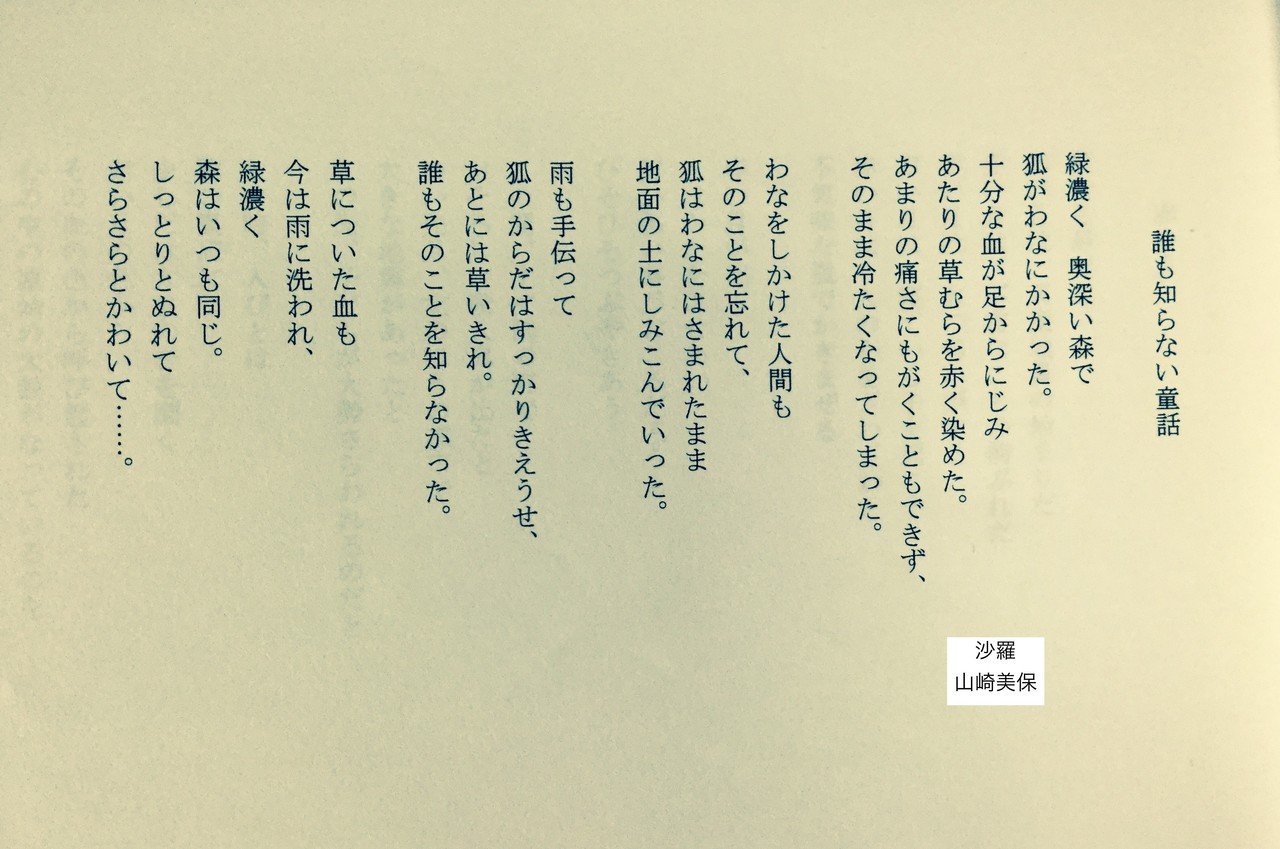 誰も知らない童話
緑濃く 奥深い森で
狐がわなにかかった。
十分な血が足からにじみ
あたりの草むらを赤く染めた。
あまりの痛さにもがくこともできず、
そのまま冷たくなってしまった。
わなをしかけた人間も
そのことを忘れて、
狐はわなにはさまれたまま
地面の土にしみこんでいった。
雨も手伝って
狐のからだはすっかりきえうせ、
あとには草いきれ。
誰もそのことを知らなかった。
草についた血も
今は雨に洗われ、
緑濃く
森はいつも同じ。
しっとりとぬれて
さらさらとかわいて……。
沙羅
山崎美保